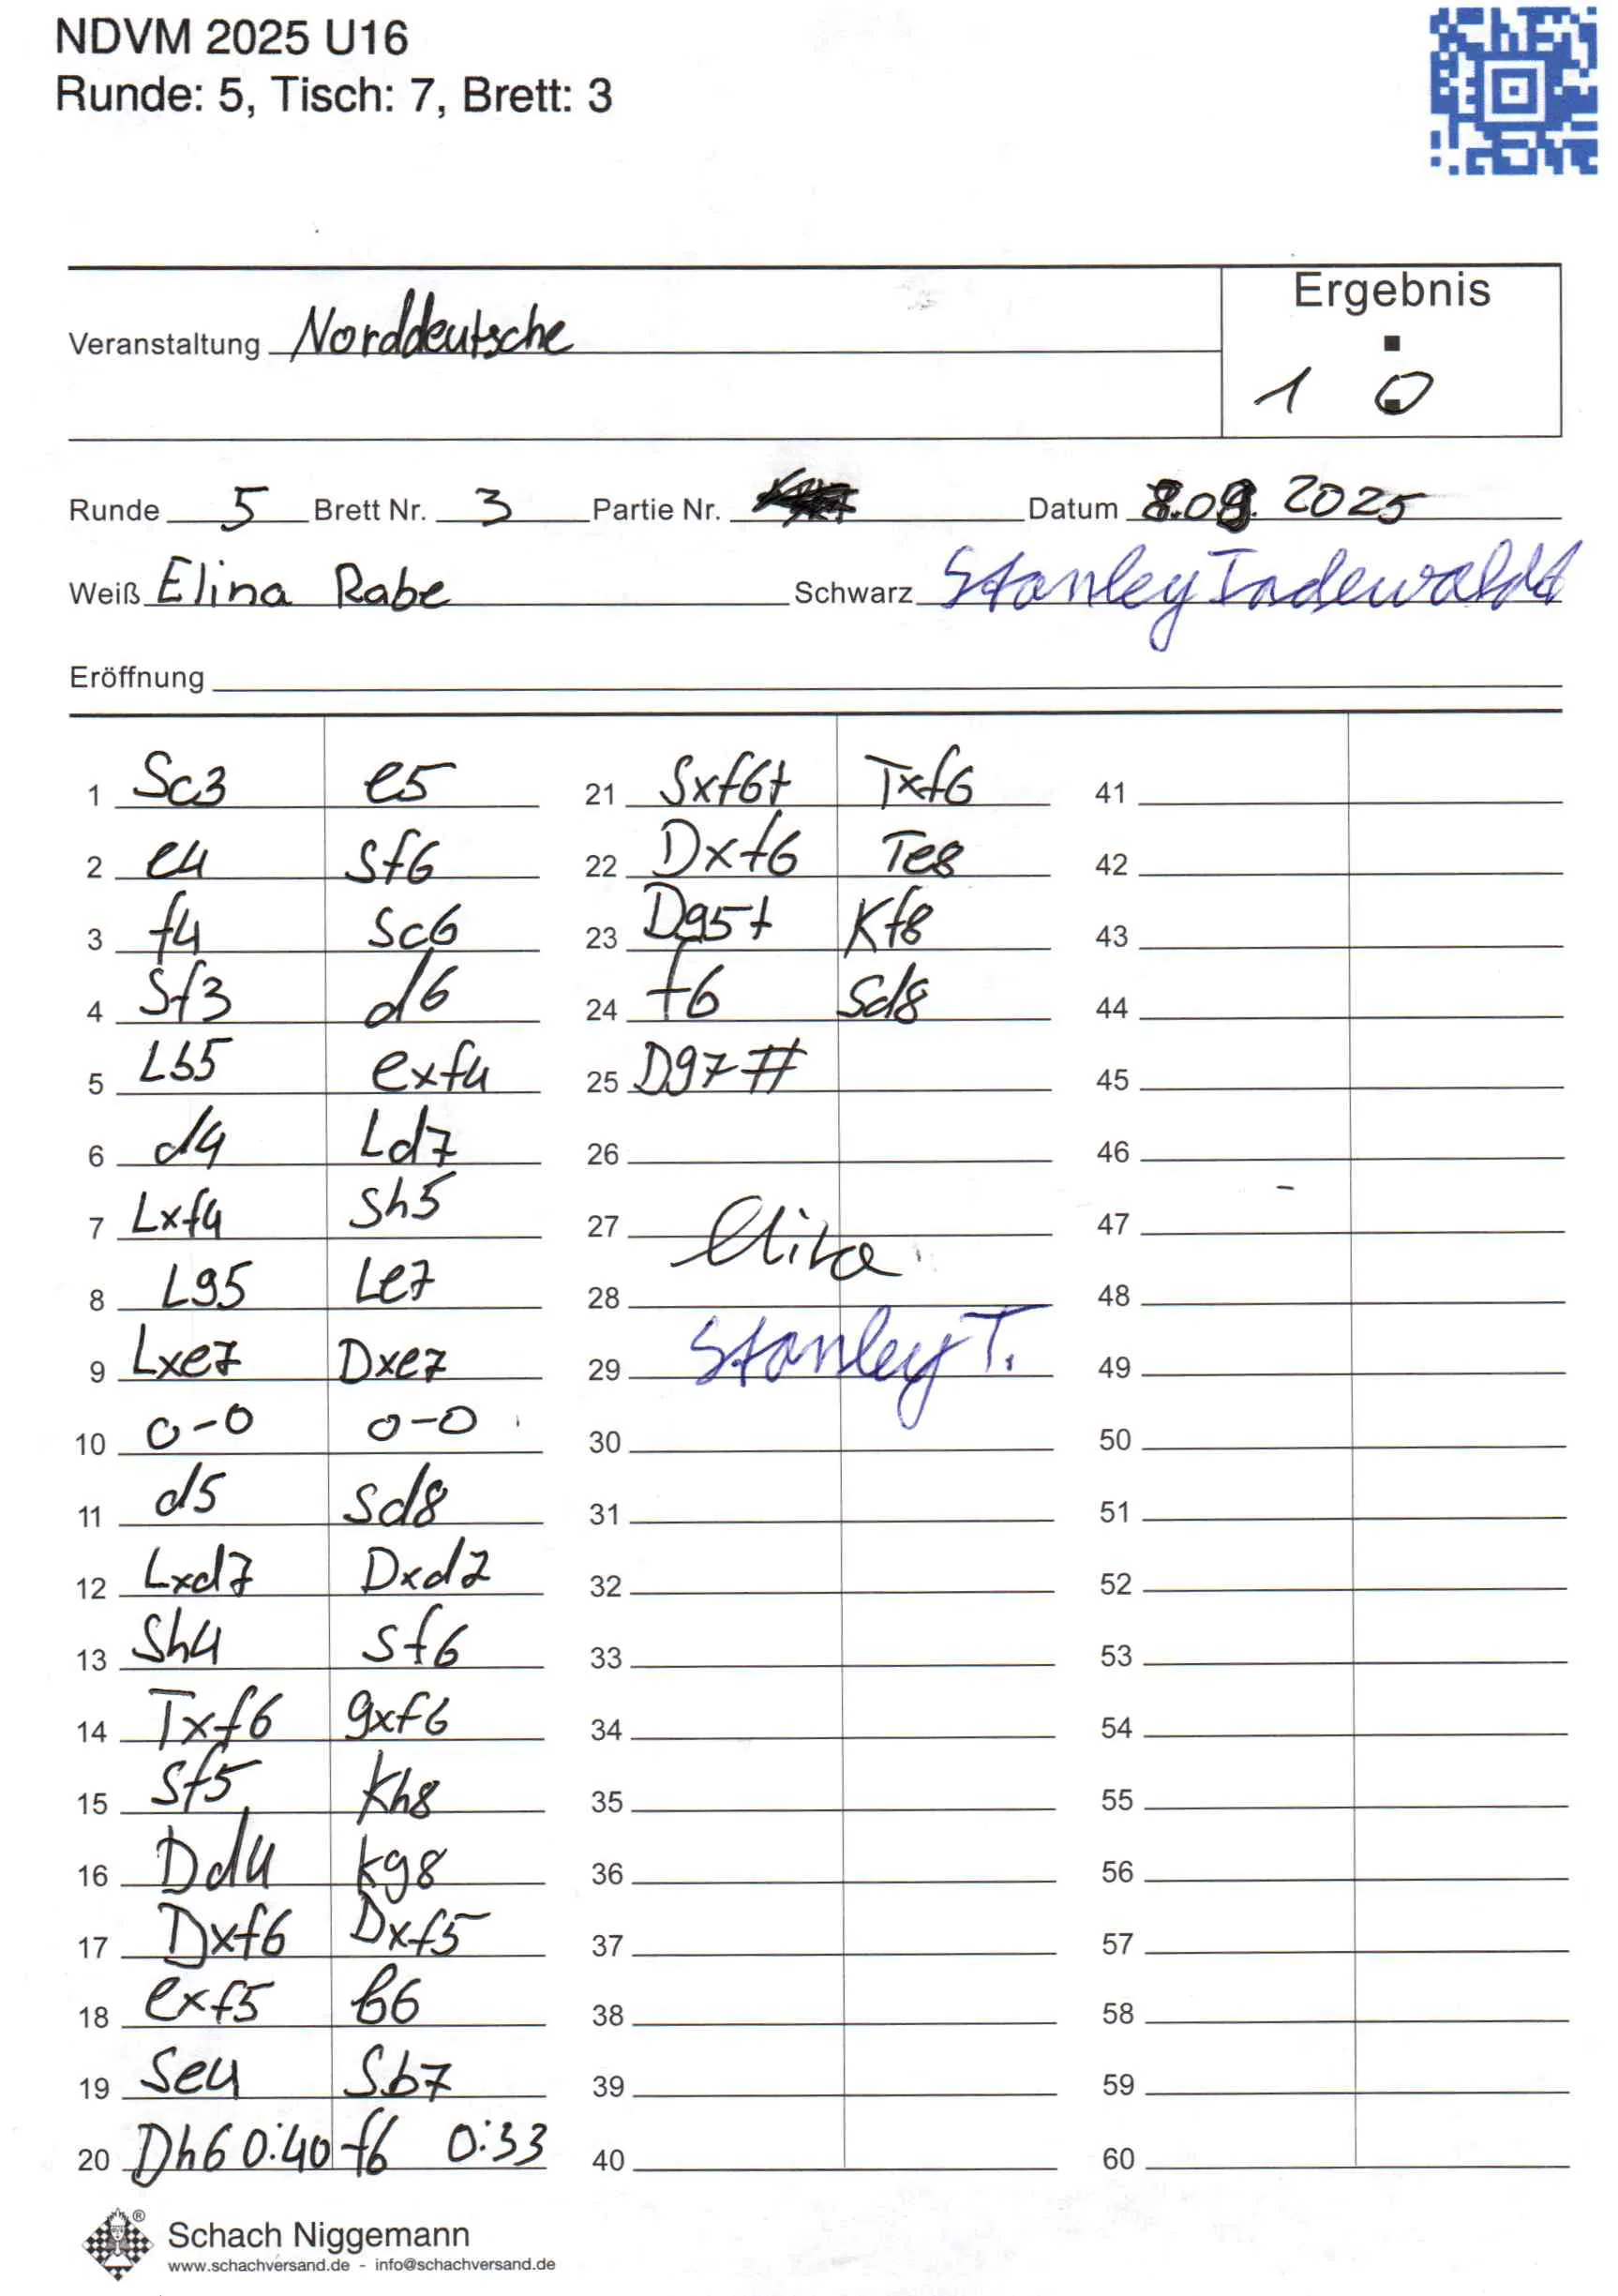 NDVM 2025 U16
Runde: 5, Tisch: 7, Brett: 3
Ergebnis
Veranstaltung Norddeutsche
1 : 0
Runde 5 Brett Nr. 3 Partie Nr. Datum 8.09. 2025
Weiß Elina Rabe Schwarz Stanley
Eröffnung
1 Sc3 e5 21 Sxf6+ Txf6 41
2 e4 Sf6 22 Dxf6 Te8 42
3 f4 Sc6 23 Dg5+ Kf8 43
4 Sf3 d6 24 f6 Sd8 44
5 Lb5 exf4 25 Dg7# 45
6 d4 Ld7 26 46
7 Lxf4 Sh5 27 47
8 Lg5 Le7 28 48
9 Lxe7 Dxe7 29 Stanley T. 49
10 0-0 0-0 30 50
11 d5 Sd8 31 51
12 Lxd7 Dxd7 32 52
13 Sh4 Sf6 33 53
14 Txf6 gxf6 34 54
15 Sf5 Kh8 35 55
16 Dd4 Kg8 36 56
17 Dxf6 Dxf5 37 57
18 exf5 b6 38 58
19 Se4 Sb7 39 59
20 Dh6 0:40 f6 0:33 40 60
Schach Niggemann
www.schachversand.de - info@schachversand.de